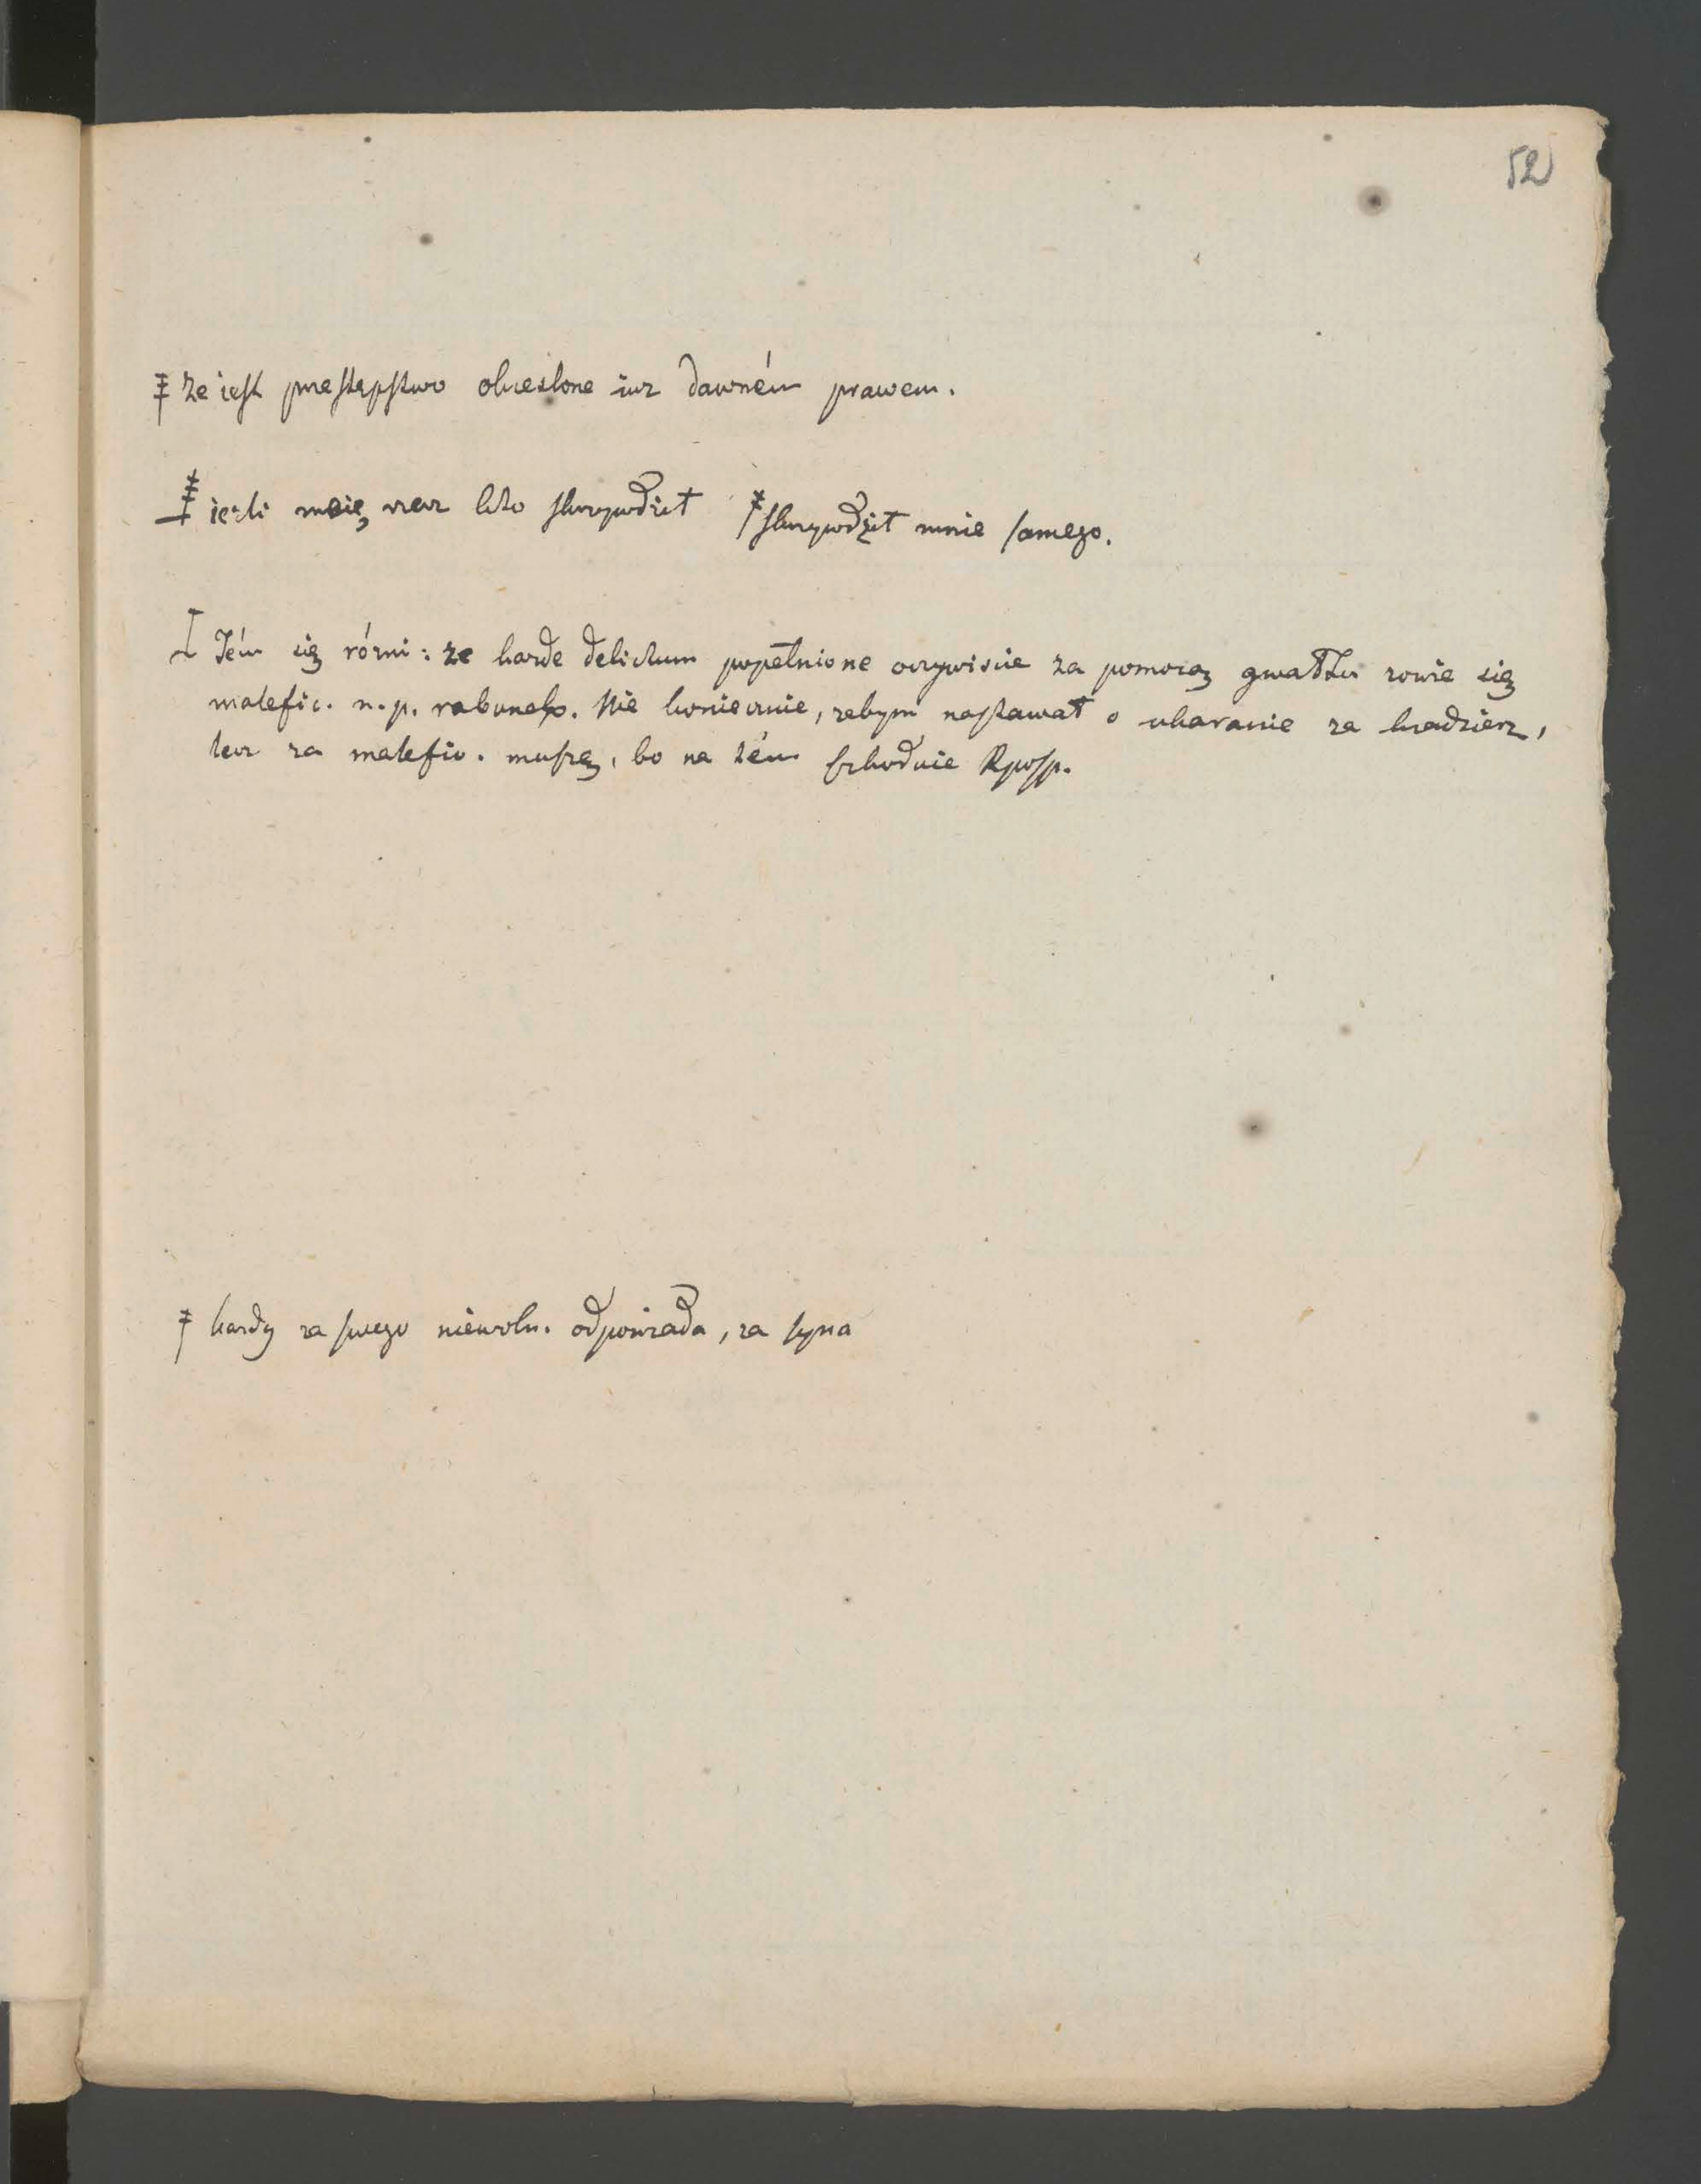 52
‡ że iest przestępstwo okreslone iuż dawném prawem.
‡ ieżli moię rzecz kto skrzywdził ‡ skrzywdził mnie samego.
I Tém się rózni: że każde delictum popełnione oczywiscie za pomocą gwałtu zowie się
malefic. n. p. rabunek. Nie koniecznie, zebym nastawał o ukaranie za kradzierz,
lecz za malefic. muszę, bo na tém szkoduie Rposp.
‡ każdy za swego niewoln. odpowiada, za syna